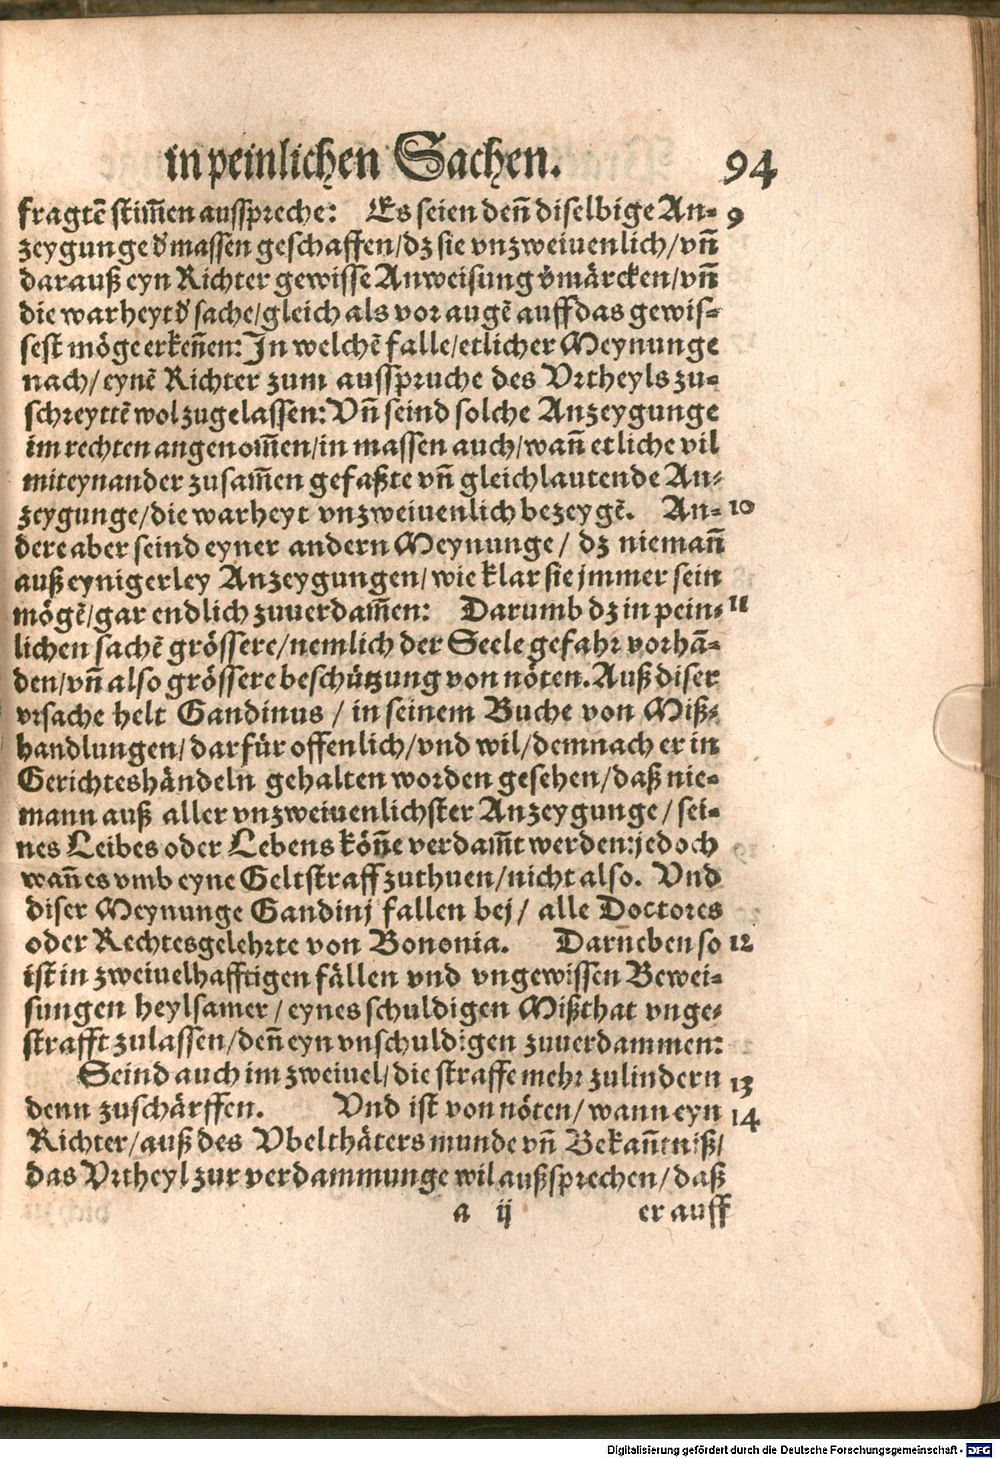 in peinlichen Sachen. 94
fragtẽ stim̃en ausspreche: Es seien deñ diselbige An= 9
zeygunge d' massen geschaffen/dz sie vnzweiuenlich/vñ
darauß eyn Richter gewisse Anweisung v̈märcken/vñ
die warheyt d' sache/gleich als vor augẽ auff das gewis=
sest möge erkeñen: In welchẽ falle/etlicher Meynunge
nach/eynẽ Richter zum ausspruche des Vrtheyls zu=
schreyttẽ wol zugelassen: Vñ seind solche Anzeygunge
im rechten angenom̃en/in massen auch/wañ etliche vil
miteynander zusam̃en gefaßte vñ gleichlautende An=
zeygunge/die warheyt vnzweiuenlich bezeygẽ. An= 10
dere aber seind eyner andern Meynunge/ dz niemañ
auß eynigerley Anzeygungen/wie klar sie jmmer sein
mögẽ/gar endlich zuuerdam̃en: Darumb dz in pein= 11
lichen sachẽ grössere/nemlich der Seele gefahr vorhã=
den/vñ also grössere beschützung von nöten. Auß diser
vrsache helt Gandinus / in seinem Buche von Miß=
handlungen/darfür offenlich/vnd wil/demnach er in
Gerichteshändeln gehalten worden gesehen/daß nie=
mann auß aller vnzweiuenlichster Anzeygunge/sei=
nes Leibes oder Lebens köñe verdam̃t werden:jedoch
wañ es vmb eyne Geltstraff zuthuen/nicht also. Vnd
diser Meynunge Gandinj fallen bej/ alle Doctores
oder Rechtesgelehrte von Bononia. Darneben so 12
ist in zweiuelhafftigen fällen vnd vngewissen Bewei=
sungen heylsamer/eynes schuldigen Mißthat vnge=
strafft zulassen/deñ eyn vnschuldigen zuuerdammen:
Seind auch im zweiuel/die straffe mehr zulindern 13
denn zuschärffen. Vnd ist von nöten/wann eyn 14
Richter/auß des Vbelthäters munde vñ Bekañtniß/
das Vrtheyl zur verdammunge wil außsprechen/daß
a ij er auff
Digitalisierung gefördert durch die Deutsche Forschungsgemeinschaft - DFG